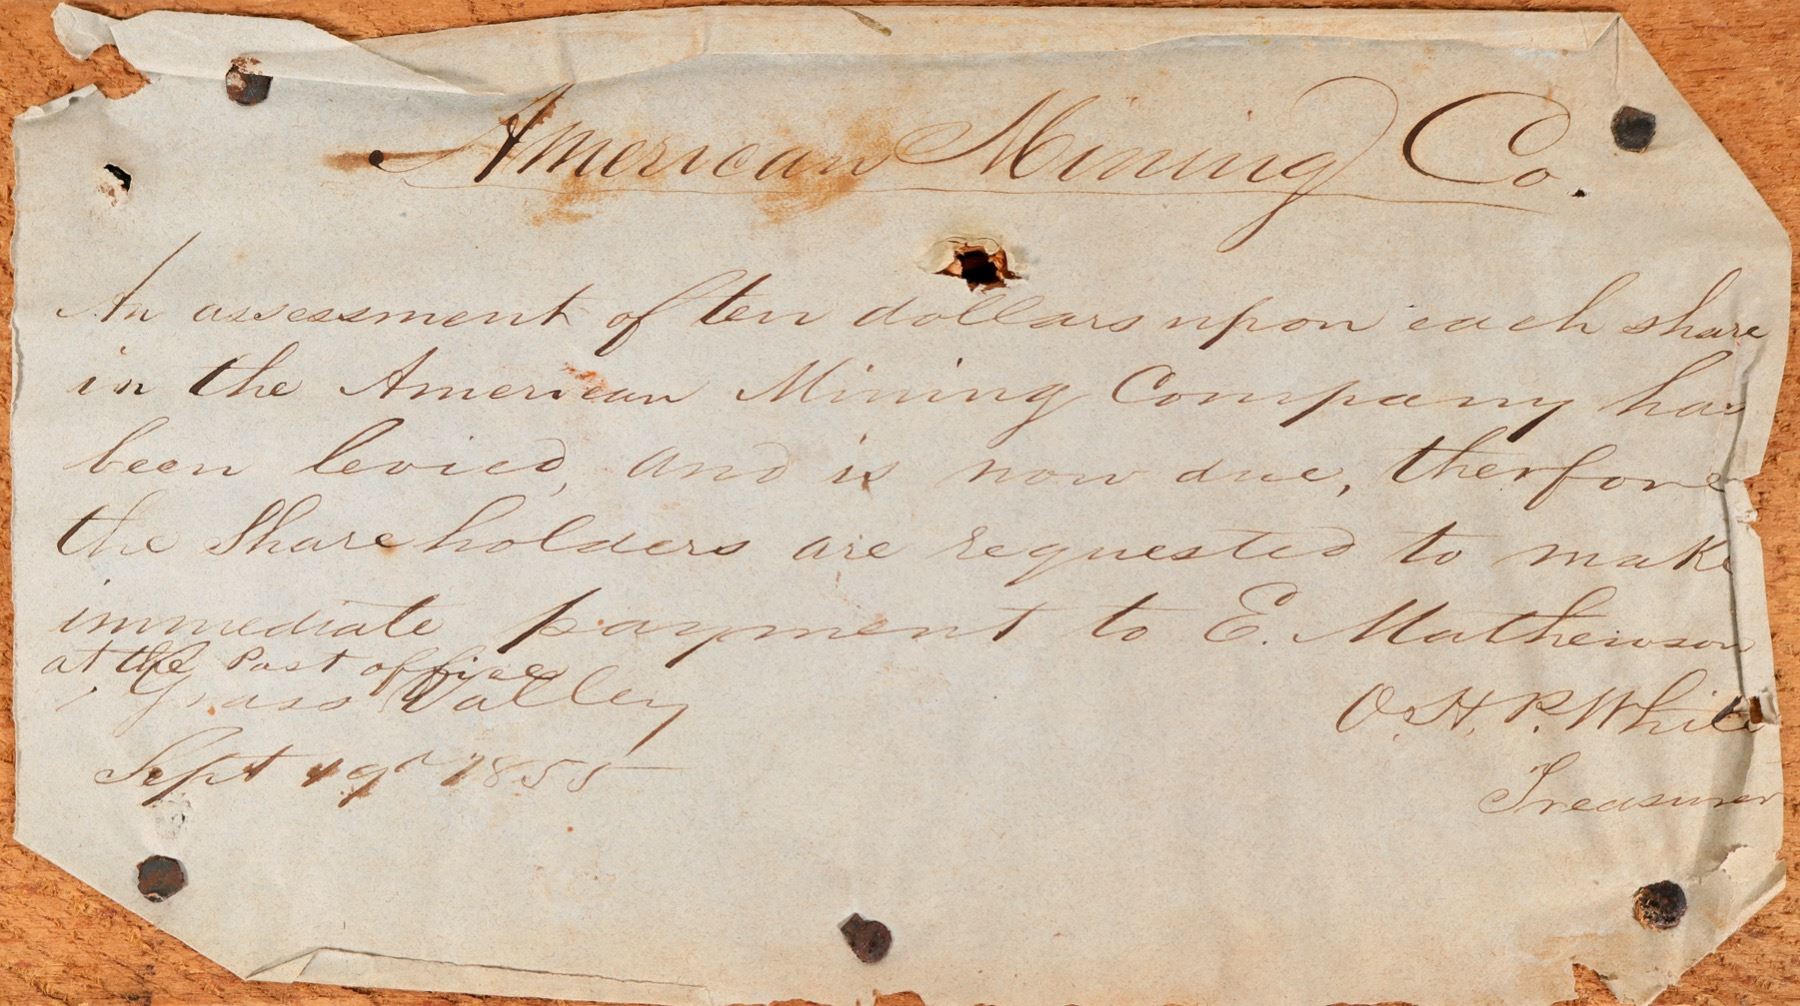 American Mining Co.
An assessment of ten dollars upon each share
in the American Mining Company has
been levied, and is now due, therfore
the Shareholders are requested to make
immediate payment to E. Mathewson
at the Post office
Grass Valley
O. H. P. White
Treasurer
Sept 19th 1855